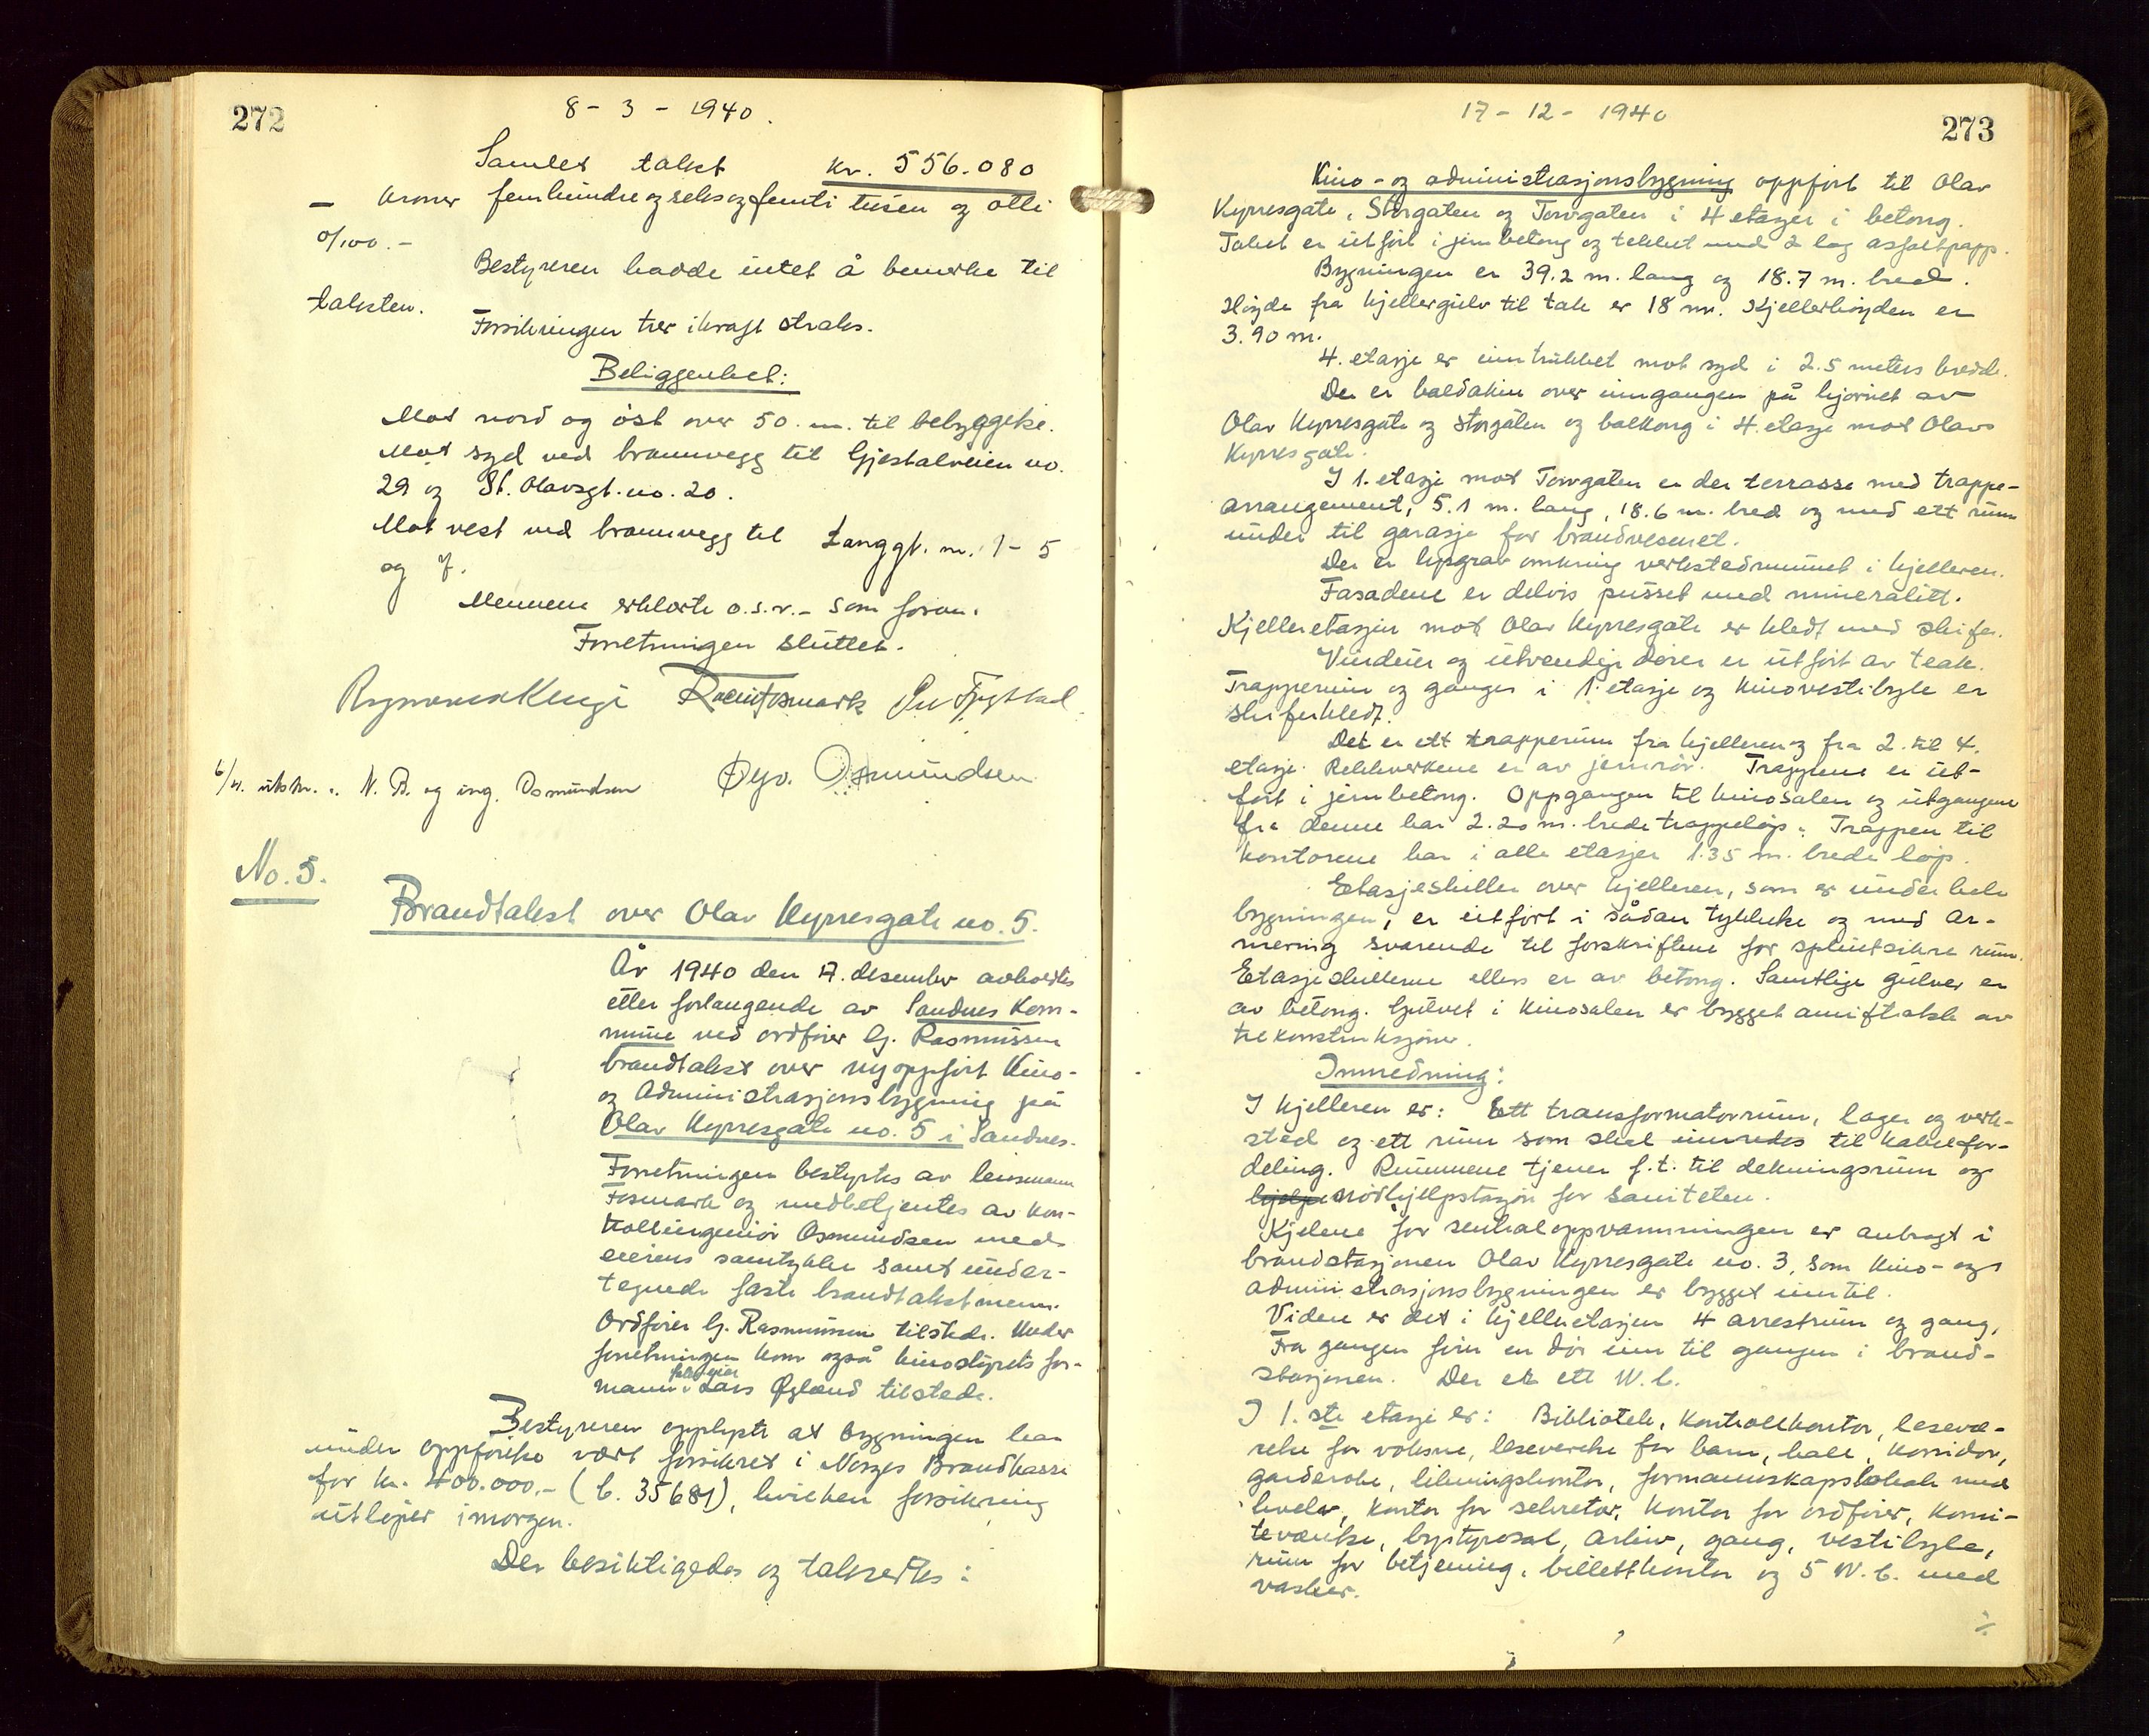 272
8 - 3 - 1940.
Samlet takst kr. 556.080
— Kroner femhundre og seks og femti tusen og otti
0/100.-
Bestyreren hadde intet å bemerke til
taksten.
Forsikringen trer ikraft straks.
Beliggenhet:
Mot nord og öst over 50 m. til bebyggelse.
Mot syd ved brannvegg til Gjestalveien no.
29 og St. Olavsgt. no. 20.
Mot vest ved brannvegg til Langgt. nr. 1 - 5
og 7.
Mennene erklærte o.s.v. - som foran.
Forretningen sluttet.
Fosmark
6/4. utskr. N. B. og ing. Osmundsen Osmundsen
No. 5.
Brandtakst over Olav Kyrresgate no. 5.
År 1940 den 17. desember avholdtes
etter forlangende av Sandnes Kom-
mune ved ordförer G. Rasmussen
brandtakst over nyoppfört Kino-
og Administrasjonsbygning på
Olav Kyrresgate no. 5 i Sandnes.
Forretningen bestyrtes av lensmann
Fosmark og medbetjentes av kon-
trollingeniör Osmundsen med
eierens samtykke samt under-
tegnede faste brandtakstmenn.
Ordförer G. Rasmussen tilstede. Under
forretningen kom også kinostyrets for-
mann Lars Øglænd tilstede.
Bestyreren opplyste at bygningen har
under oppförelse vært forsikret i Norges Brandkasse
for kr. 400.000.- (b. 35681), hvilken forsikring
utlöper imorgen.
Der besiktigedes og taksertes:
17 - 12 - 1940
273
Kino- og administrasjonsbygning oppfört til Olav
Kyrresgate, Storgaten og Torvgaten i 4 etasjer i betong.
Taket er utfört i jernbetong og tekket med 2 lag asfaltpapp.
Bygningen er 39.2 m. lang og 18.7 m. bred.
Höyde fra kjellergulv til tak er 18 m. Kjellerhöyden er
3.90 m.
4. etasje er inntrukket mot syd i 2.5 meters bredde.
Der er baldakin over inngangen på hjörnet av
Olav Kyrresgate og Storgaten og balkong i 4. etasje mot Olav
Kyrresgate.
I 1. etasje mot Torvgaten er der terrasse med trappe-
arrangement, 5.1 m. lang, 18.6 m. bred og med ett rum
under til garasje for brandvesenet.
Der er lysgrav omkring verkstedrummet i kjelleren.
Fasadene er delvis pusset med mineralitt.
Kjelleretasjen mot Olav Kyrresgate er kledt med skifer.
Vinduer og utvendige dörer er utfört av teak.
Trapperum og ganger i 1. etasje og kinovestibyle er
skiferkledt.
Det er ett trapperum fra kjelleren og fra 2. til 4.
etasje. Rekkverkene er av jernrör. Trappene er ut-
fört i jernbetong. Oppgangen til kinosalen og utgangene
fra denne har 2.20 m. brede trappelöp. Trappen til
kontorene har i alle etasjer 1.35 m. brede löp.
Etasjeskillet over kjelleren, som er under hele
bygningen, er utfört i sådan tykkelse og med ar-
mering svarende til forskriftene for splintsikre rum.
Etasjeskillene ellers er av betong. Samtlige gulver er
av betong. Gulvet i kinosalen er bygget av
trekonstruksjoner.
Innredning:
I kjelleren er: Ett transformatorrum, lager og verk-
sted og ett rum som skal innredes til kabelfor-
deling. Rummene tjener f. t. til dekningsrum og
hjelpe nödhjelpstasjon for saniteten.
Kjelene for sentraloppvarmningen er anbragt i
brandstasjonen Olav Kyrresgate no. 3, som kino- og
administrasjonsbygningen er bygget inntil.
Videre er det i kjelleretasjen 4 arrestrum og gang.
Fra gangen förer en dör inn til gangen i brand-
stasjonen. Der er ett W.C.
I 1.ste etasje er: Bibliotek, kontrollkontor, lesevæ-
relse for voksne, leseværelse for barn, hall, korridor,
garderobe, likningskontor, formannskapslokale med
hvelv, kontor for sekretær, kontor for ordförer, komi-
teværelse, bystyresal, arkiv, gang, vestibyle,
rum for betjening, billettkontor og 5 W.C. med
vasker.